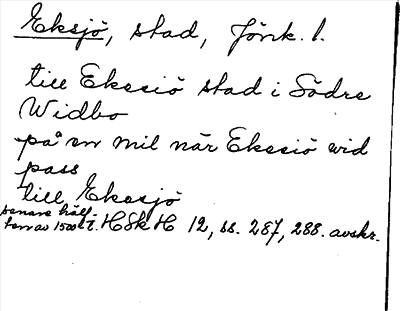 Eksjö, stad, Jönk. l.
till Ekesiö stad i Södre
Widbo
på en mil när Ekesiö wid
pass
till Ekesjö
senare hälf-
ten av 1500-t. HSkH 12, ss. 287, 288. avskr.